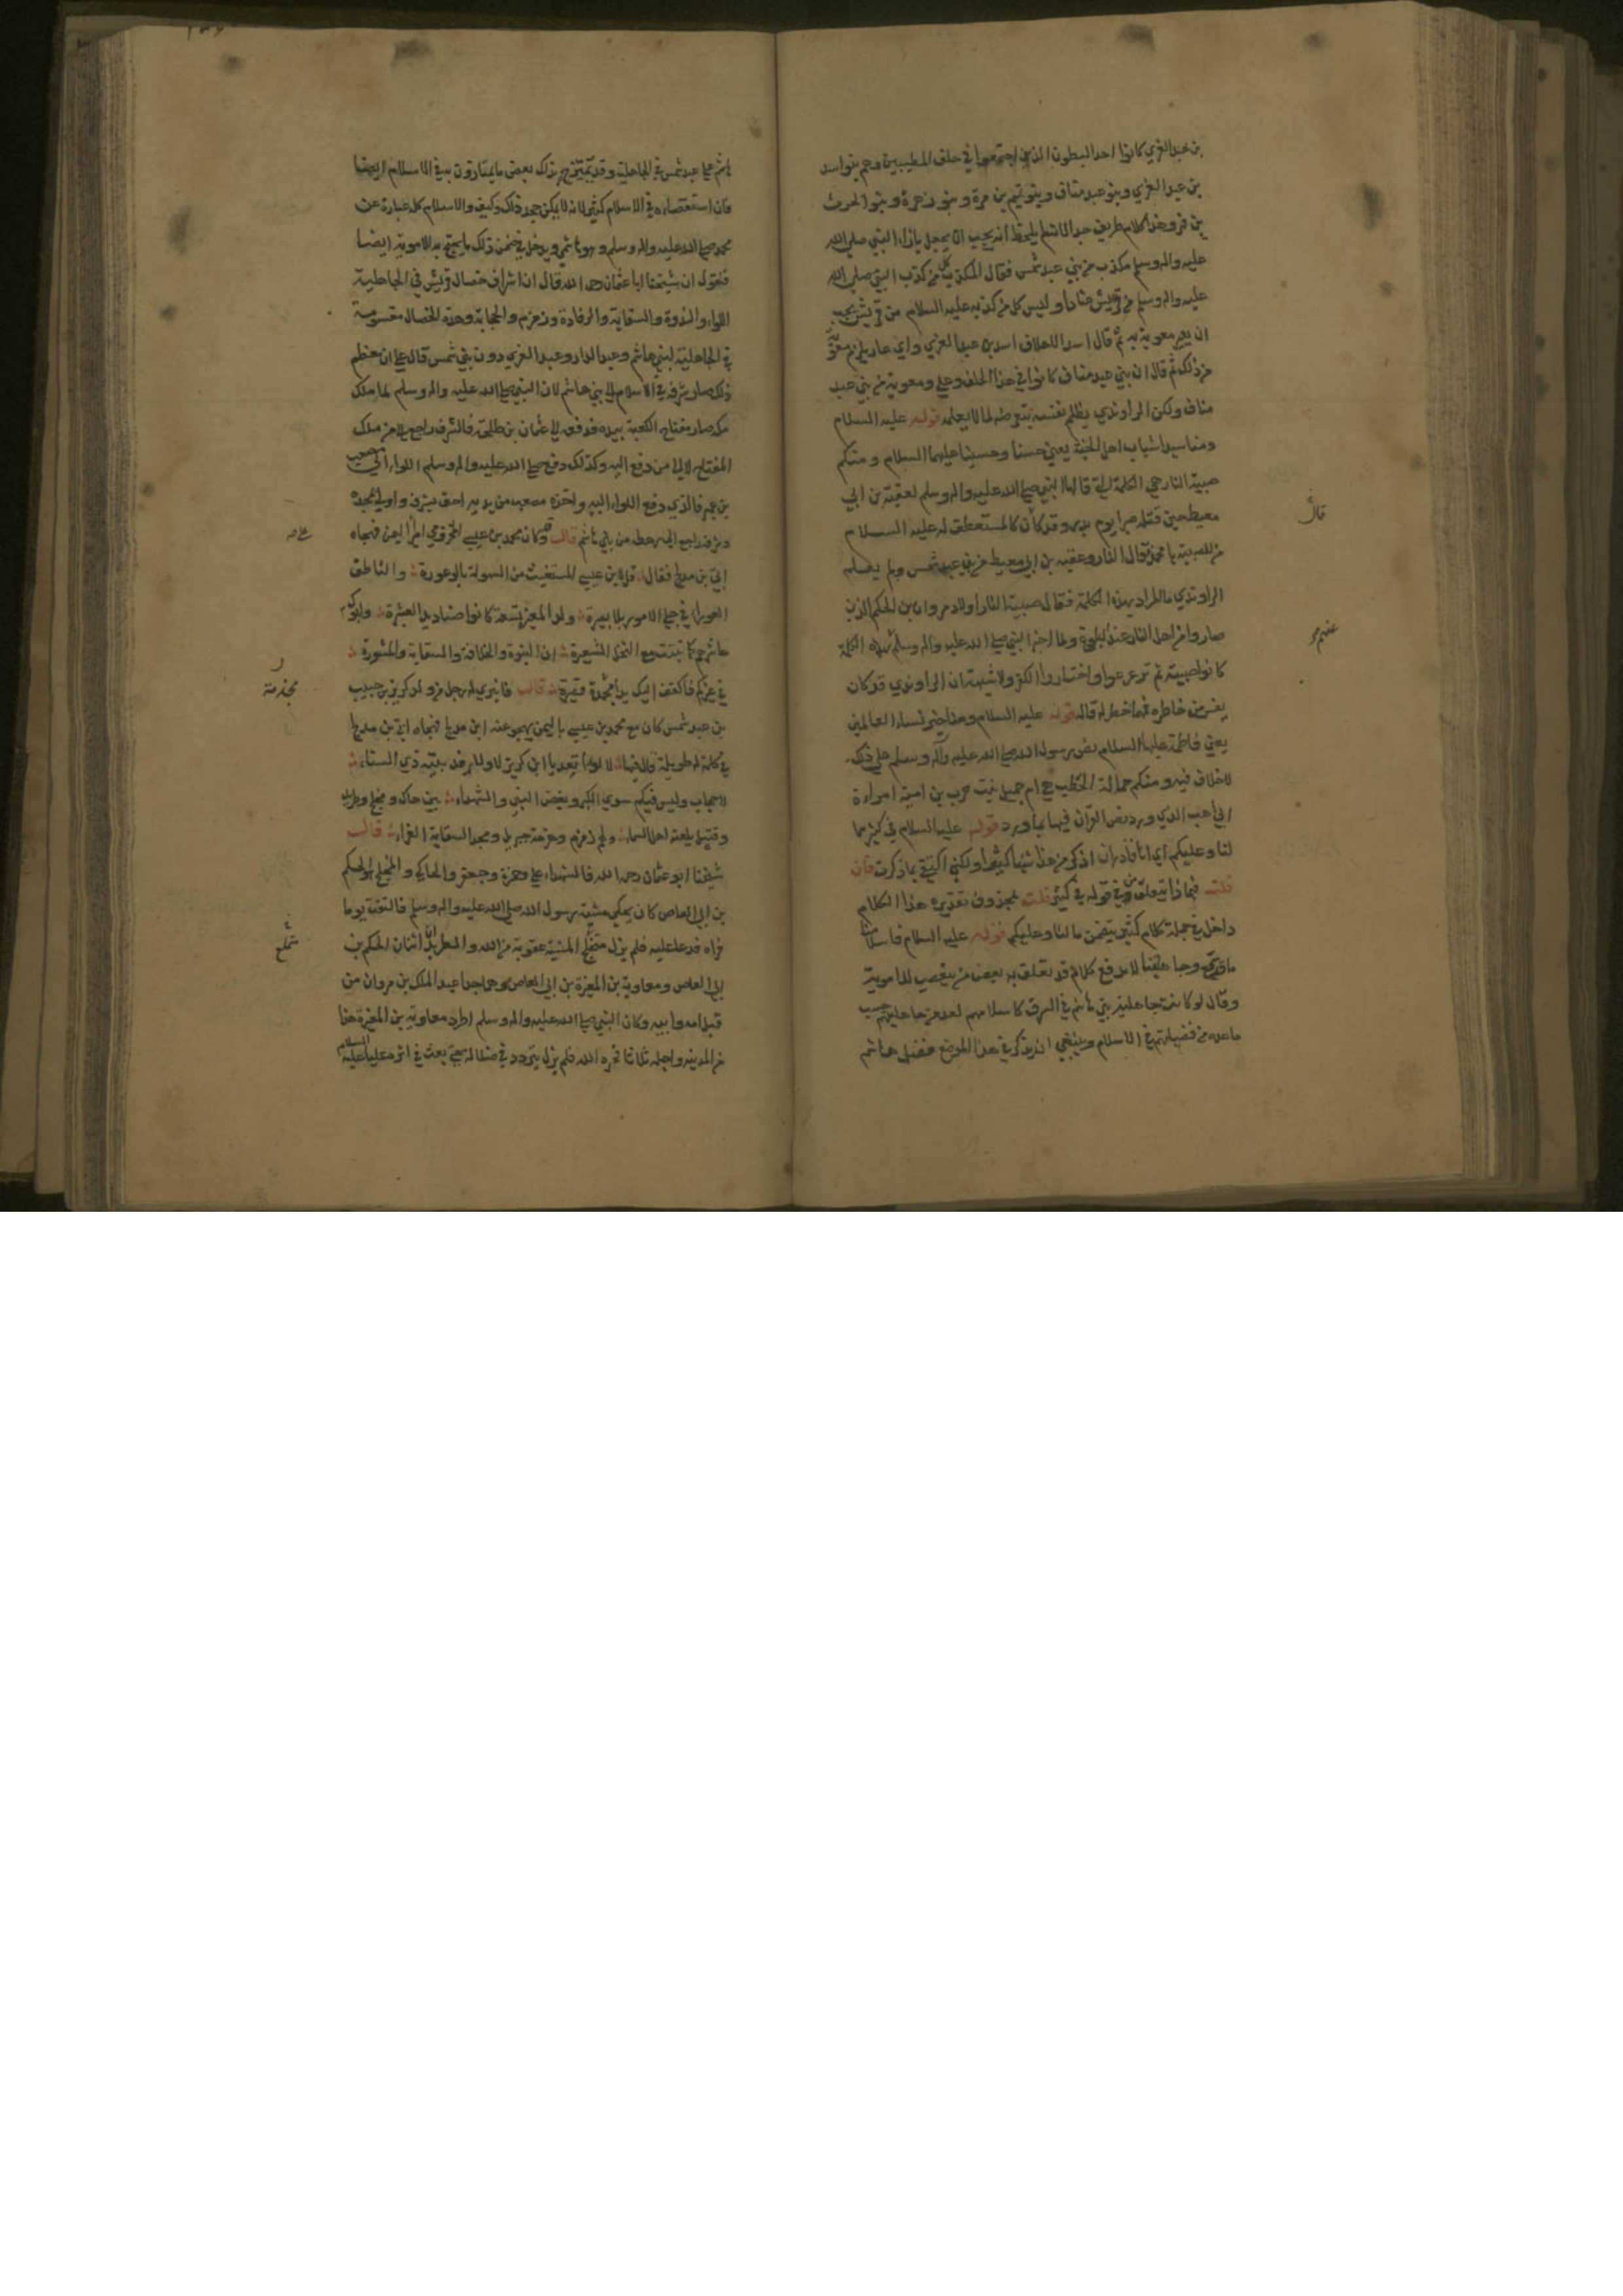 بن عبد العزي كانوا احد البطون الذين اجتمعوا في حلف المطيبين وهم بنو اسد
بن عبد العزي وبنو عبد مناف وبنو تيم بن مرة وبنو زهرة وبنو الحرث
بن فهر وهذا كلام طريف جدا لانه لم يلحظ انه يجب ان يجعل بازاء النبي صلي الله
عليه واله وسلم مكذب من بني عبد شمس فقال المكذب كل من كذب النبي صلي الله
عليه واله وسلم من قريش عنادا وليس كل من كذبه عليه السلام من قريش يجب
ان يعير معوية به ثم قال اسد الاحلاف اسد بن عبد العزي واي عار يلزم معوية
من ذلك ثم قال ان بني عبد مناف كانوا في هذا الحلف وعلي ومعوية من بني عبد
مناف ولكن الراوندي يظلم نفسه بتعرضه لما لا يعلمه قوله عليه السلام
ومنا سيدا شباب اهل الجنة يعني حسنا وحسينا عليهما السلام ومنكم
صبية النار هي الكلمة التي قالها النبي صلي الله عليه واله وسلم لعقبة بن ابي
معيط حين قتله صبرا يوم بدر وقد كان كالمستعطف له عليه السلام
من للصبية يا محمد قال النار وعقبه بن ابي معيط من بني عبد شمس ولم يعلم
الراوندي ما المراد بهذه الكلمة فقال صبية النار اولاد مروان بن الحكم الذين
صاروا من اهل النار عند البلوغ ولما اخبر النبي صلي الله عليه واله وسلم بهذه الكلمة
كانوا صبية ثم ترعرعوا واختاروا الكفر ولا شبهة ان الراوندي قد كان
يفسر من خاطره فما خطر له قاله قوله عليه السلام ومنا خير نساء العالمين
يعني فاطمة عليها السلام نص رسول الله صلي الله عليه وآله وسلم علي ذلك
لا خلاف فيه ومنكم حمالة الحطب هي ام جميل بنت حرب بن امية امراءة
ابي لهب الذي ورد نص القرآن فيها بما ورد قوله عليه السلام في كثير مما
لنا وعليكم اي انا قادر ان اذكر من هذا شيئا كثيرا ولكني اكتفي بما ذكرت فان
قلت فبماذا يتعلق في قوله في كثير قلت بمحذوف تقديره هذا الكلام
داخل في جملة كلام كثير يتضمن ما لنا وعليكم قوله عليه السلام فاسلامنا
ما قد سمع وجاهليتنا لا تدفع كلام قد تعلق به بعض من يتعصب للاموية
وقال لو كانت جاهلية بني هاشم في الشرف كاسلامهم لعد من جاهليتهم حسب
ما عد من فضيلتهم في الاسلام وينبغي ان يذكر في هذا الموضع فضل هاشم
قال
عنهم
هاشم علي عبد شمس في الجاهلية وقد يمتزج بذلك بعض ما يمتازون به في الاسلام ايضا
فان استقصاءه في الاسلام كثير لانه لا يمكن جحد ذلك وكيف والاسلام كله عبارة عن
محمد صلي الله عليه واله وسلم وهو هاشمي ويدخل في ضمن ذلك ما يحتج به الاموية ايضا
فنقول ان شيخنا ابا عثمان رحمه الله قال ان اشرف خصال قريش في الجاهلية
اللواء والندوة والسقاية والرفادة وزمزم والحجابة وهذه الخصال مقسومة
في الجاهلية لبني هاشم وعبد الدار وعبد العزي دون بني عبد شمس قال علي ان معظم
ذلك صار شرفه في الاسلام الي بني هاشم لان النبي صلي الله عليه واله وسلم لما ملك
مكه صار مفتاح الكعبة بيده فدفعه الي عثمان بن طلحة فالشرف راجع الي من ملك
المفتاح لا الي من دفع اليه وكذلك دفع صلي الله عليه واله وسلم اللواء الي مصعب
بن عمير فالذي دفع اللواء اليه واخذه مصعب من يديه احق بشرفه واولي بمجده
وشرفه راجع الي رهطه من بني هاشم قال وكان محمد بن عيسي المخزومي اميرا اليمن فهجاه
ابي بن مدلج فقال قل لابن عيسي المستغيث من السهولة بالوعورة والناطق
العوراء في جل الامور بلا بصيرة ولد المغيرة تسعة كانوا صناديد العشيرة وابوك
عاشرهم كما نبتت مع النخل الشعيرة ان النبوة والخلافة والسقاية والمشورة
في غيركم فاكفف اليك يدا مجذمة قصيرة قال فانبري له رجل من ولد كريز بن حبيب
بن عبد شمس كان مع محمد بن عيسي باليمن يهجو عنه ابن مدلج فهجاه ابي بن مدلج
في كلمة له طويلة قال فيها لا لواء يعد يا ابن كريز لا ولا رفد بيته ذي السناء
لا حجاب وليس فيكم سوي الكبر وبغض النبي والشهداء بين حاك ومخلج وطريد
وقتيل يلعنه اهل السماء ولهم زمزم وهزمة جبريل ومجد السقاية الغراء قال
شيخنا ابو عثمان رحمه الله فالشهداء علي وحمزة وجعفر والحاكي والمخلج هو الحكم
بن ابي العاص كان يحكي مشية رسول الله صلي الله عليه واله وسلم فالتفت يوما
فراه فدعا عليه فلم يزل مخلج المشية عقوبة من الله والطريد اثنان الحكم بن
ابي العاص ومعاوية بن المغيرة بن ابي العاص وهما جدا عبد الملك بن مروان من
قبل امه وابيه وكان النبي صلي الله عليه واله وسلم اطرد معاوية بن المغيرة هذا
من المدينه واجله ثلاثا فحيره الله فلم يزل يتردد في ضلاله حتي بعث في اثره عليا عليه السلام
مجذمة